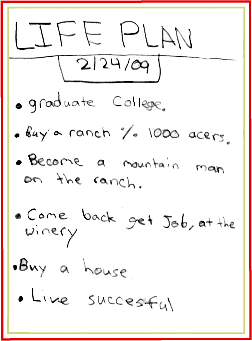 LIFE PLAN
2/24/09
• graduate College.
• Buy a ranch % 1000 acers.
• Become a mountain man
on the ranch.
• Come back get Job, at the
winery
• Buy a house
• Live succesful